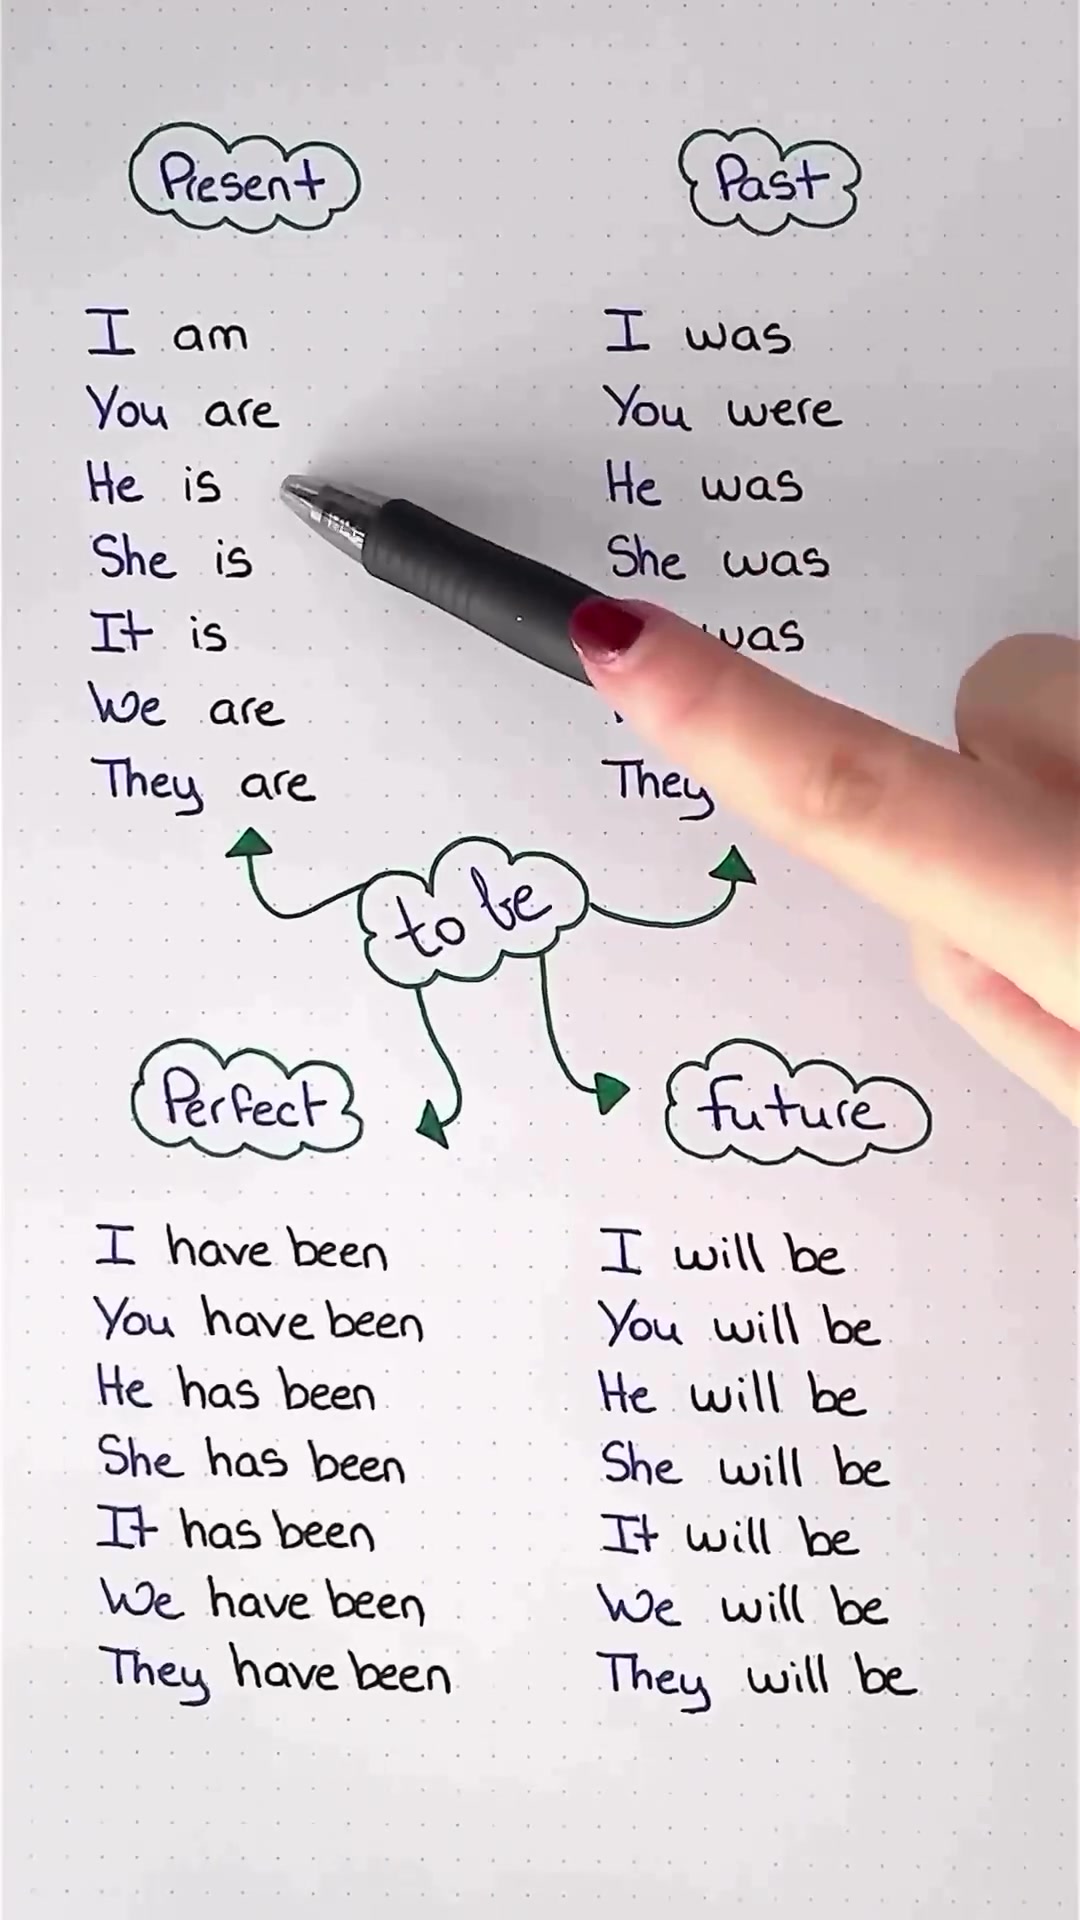 Present
I am
You are
He is
She is
It is
We are
They are
Past
I was
You were
He was
She was
was
They
to be
Perfect
I have been
You have been
He has been
She has been
It has been
We have been
They have been
future
I will be
You will be
He will be
She will be
It will be
We will be
They will be